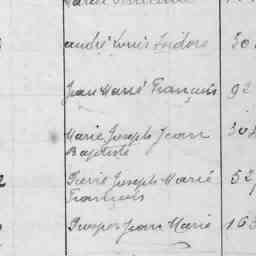 andré Louis Isidore 30
Jean Marie François 92
Marie Joseph Jean 303
Baptiste
2 Pierre Joseph Marié 52
François
Prosper Jean Marie 163